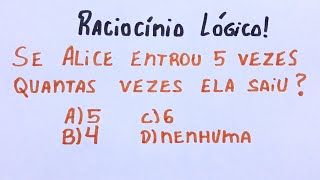 Raciocínio Lógico!
Se Alice entrou 5 vezes
quantas vezes ela saiu?
A) 5 C) 6
B) 4 D) nenhuma